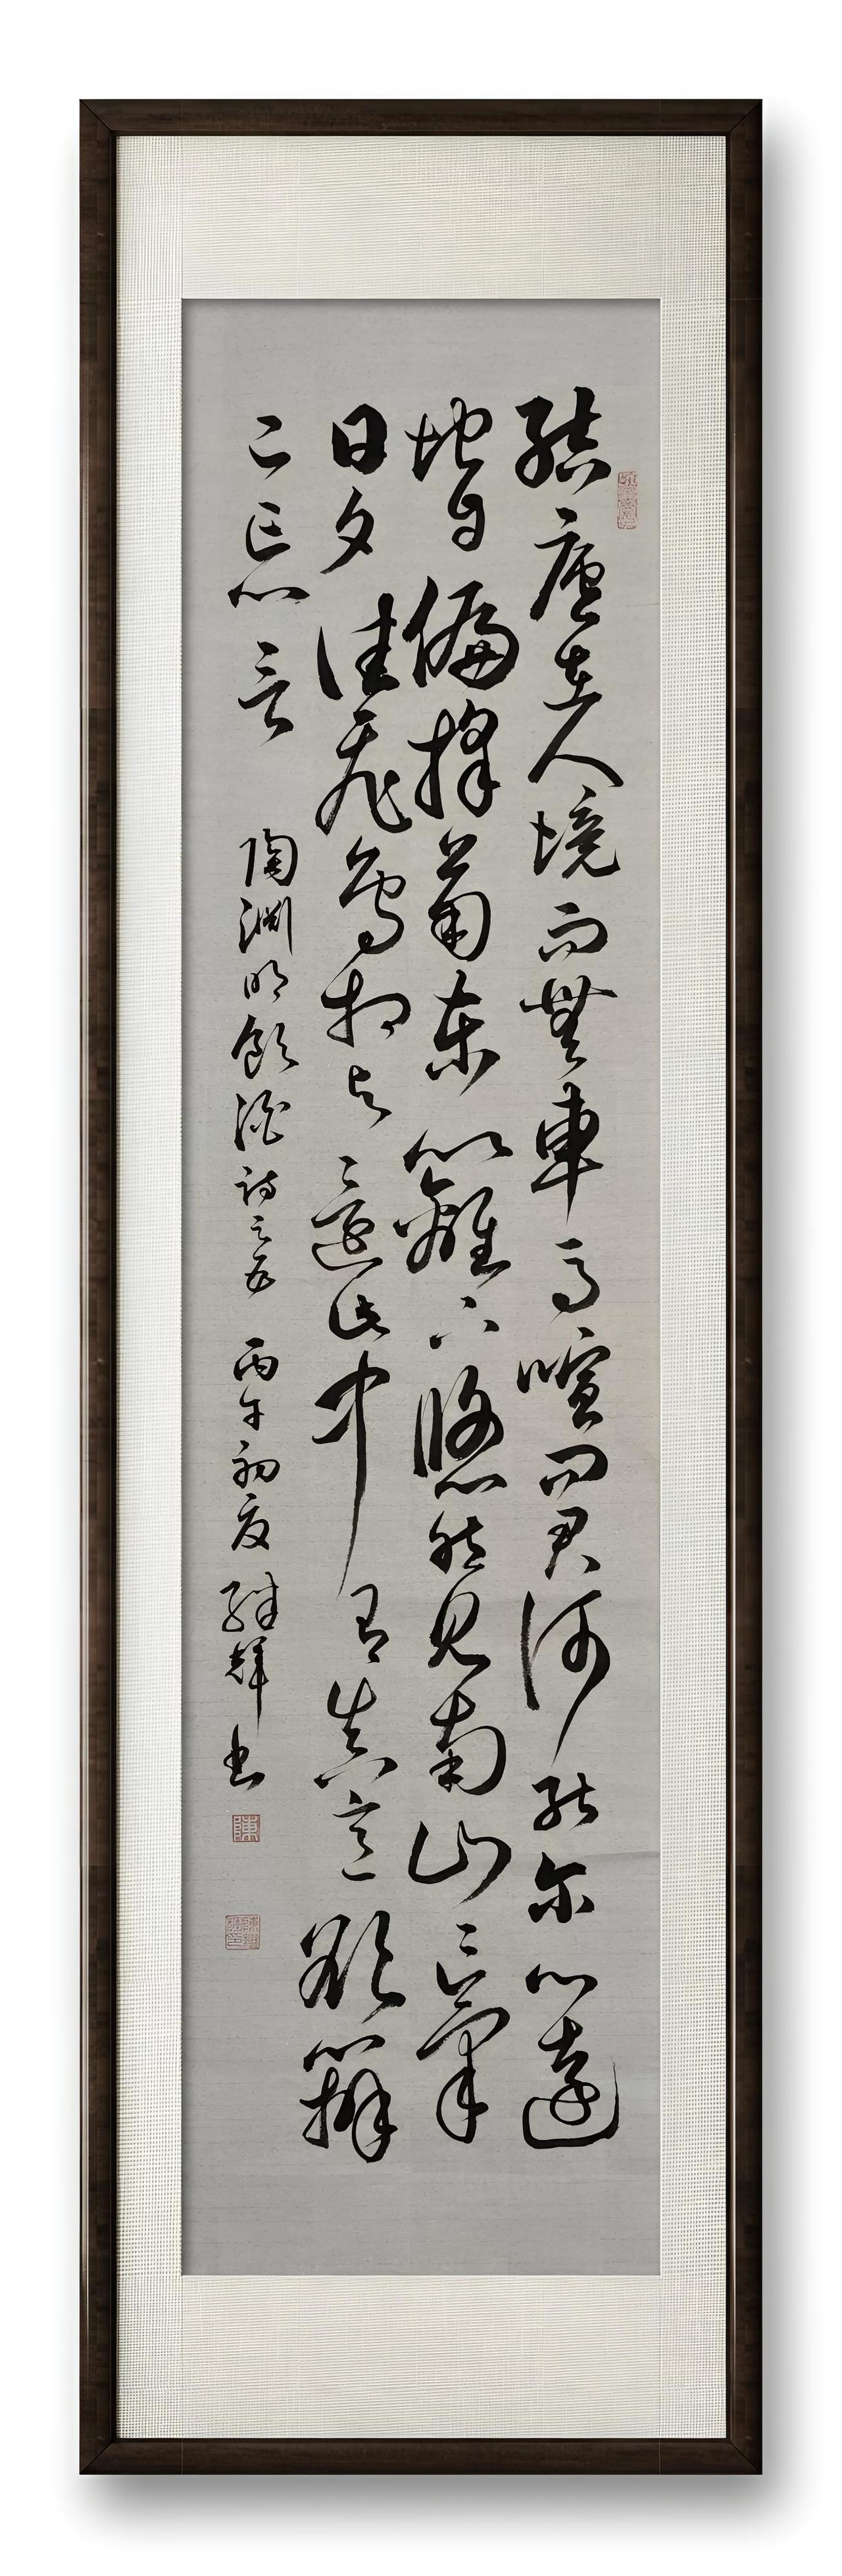 結廬在人境而無車馬喧問君何能尔心遠
地自偏採菊東籬下悠然見南山〻氣
日夕佳飛鳥相与還此中有真意欲辯
已忘言
陶淵明飲酒詩之五 丙午初夏 繼輝書